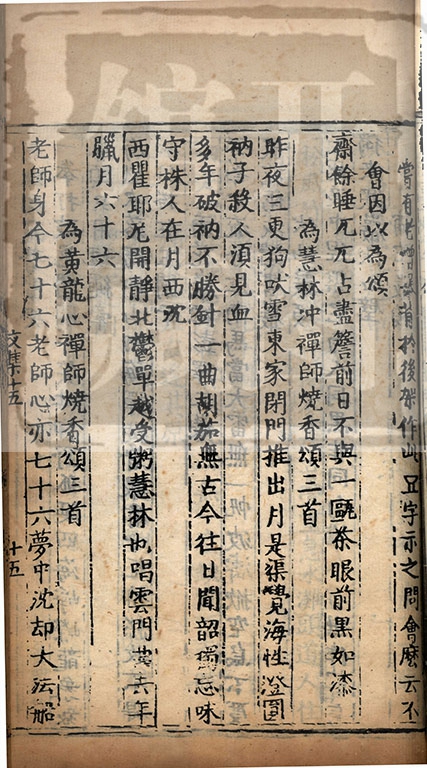 嘗有比丘喫首於後架作此〇字示之問會麼云不
會因以為頌
齋餘睡兀兀占盡簷前日不與一甌茶眼前黑如漆
為慧林冲禪師燒香頌三首
昨夜三更狗吠雪東家閉門推出月是渠覺海性澄圓
衲子殺人須見血
多年破衲不勝針一曲胡笳無古今往日聞韶獨忘味
守株人在月西沉
西瞿耶尼開靜北鬱單越受粥慧林也唱雲門黃去年
臘月六十六
為黃龍心禪師燒香頌三首
老師身今七十六老師心亦七十六夢中沈却大法船
文集十五
十五